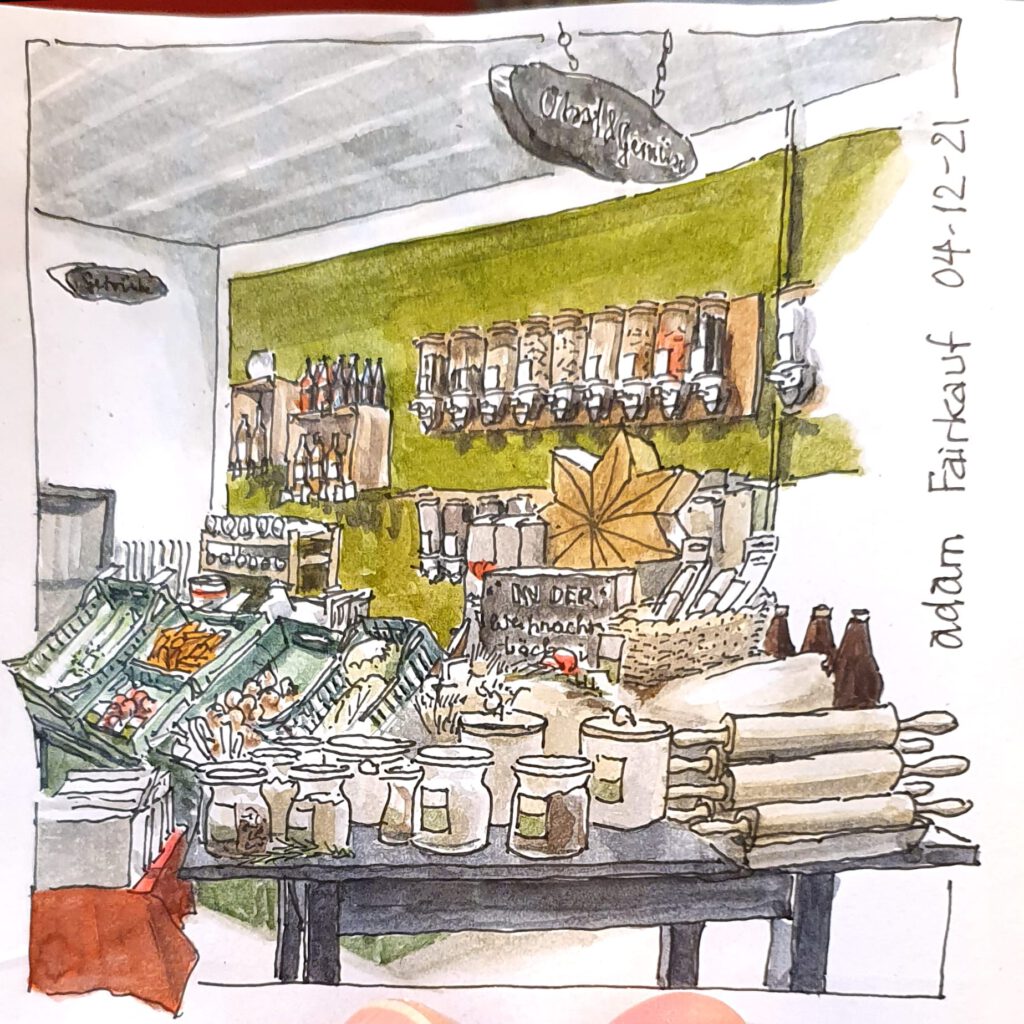 Obst & Gemüse
Getränke
IN DER
Weihnachts
bäckerei
adam Fairkauf 04-12-21